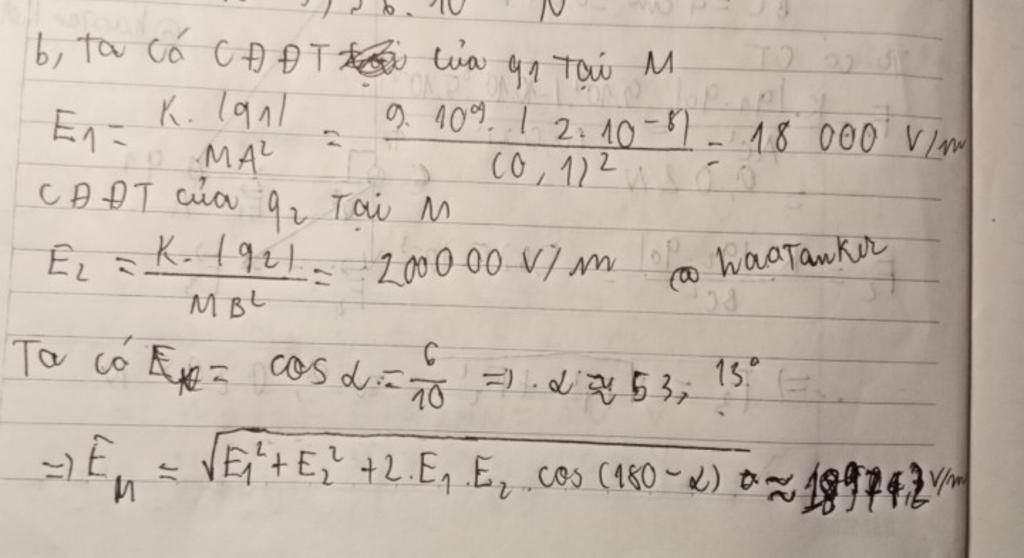 b, Ta có CĐĐT của q1 Tại M
E1 = K. |q1| / MA² = 9. 10⁹. | 2. 10⁻⁸| / (0,1)² = 18 000 V/m
CĐĐT của q2 Tại M
E2 = K. |q2| / MB² = 200000 V/m @ haaTanker
Ta có = cos α = 6/10 => . α ≈ 53, 13°
=> E M = √E1² + E2² + 2. E1 . E2 . cos (180 - α) ≈ V/m